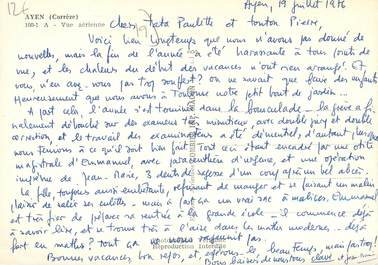 126
AYEN (Corrèze)
100-1 A - Vue aérienne
Ayen, 19 juillet 1976
Chers Tata Paulette et tonton Pierre,
Voici bien longtemps que nous n'avons pas donné de
nouvelles, mais la fin de l'année a été harassante à tous points de
vue, et les chaleurs du début des vacances n'ont rien arrangé. Et
vous, n'en avez-vous pas trop souffert? on ne savait que faire des enfants
heureusement que nous avons à Toulouse notre petit bout de jardin...
A part cela, l'année s'est terminée dans la bousculade - la grève a fi-
nalement débouché sur des examens très minutieux, avec double jury et double
correction, et le travail des examinateurs a été démentiel, d'autant plus que
nous tenions à ce qu'il soit bien fait. Tout ceci étant encadré par une otite
magistrale d'Emmanuel, avec paracenthèse d'urgence, et une opération
imprévue de Jean-Marie, 3 dents de sagesse d'un coup après un bel abcès.
La fille, toujours aussi embêtante, refusant de manger et se faisant un malin
plaisir de salir ses culottes - mais à part ça un vrai sac à malices. Emmanuel
est très fier de préparer sa rentrée à la grande école - il commence déjà
à savoir lire, et se trouve très à l'aise dans les maths modernes - déjà
fort en maths? tout ça ne nous rajeunit pas.
Bonnes vacances, bon repos, et espérons le beau temps, mais pas trop!
Bons baisers de nous tous
Reproduction interdite